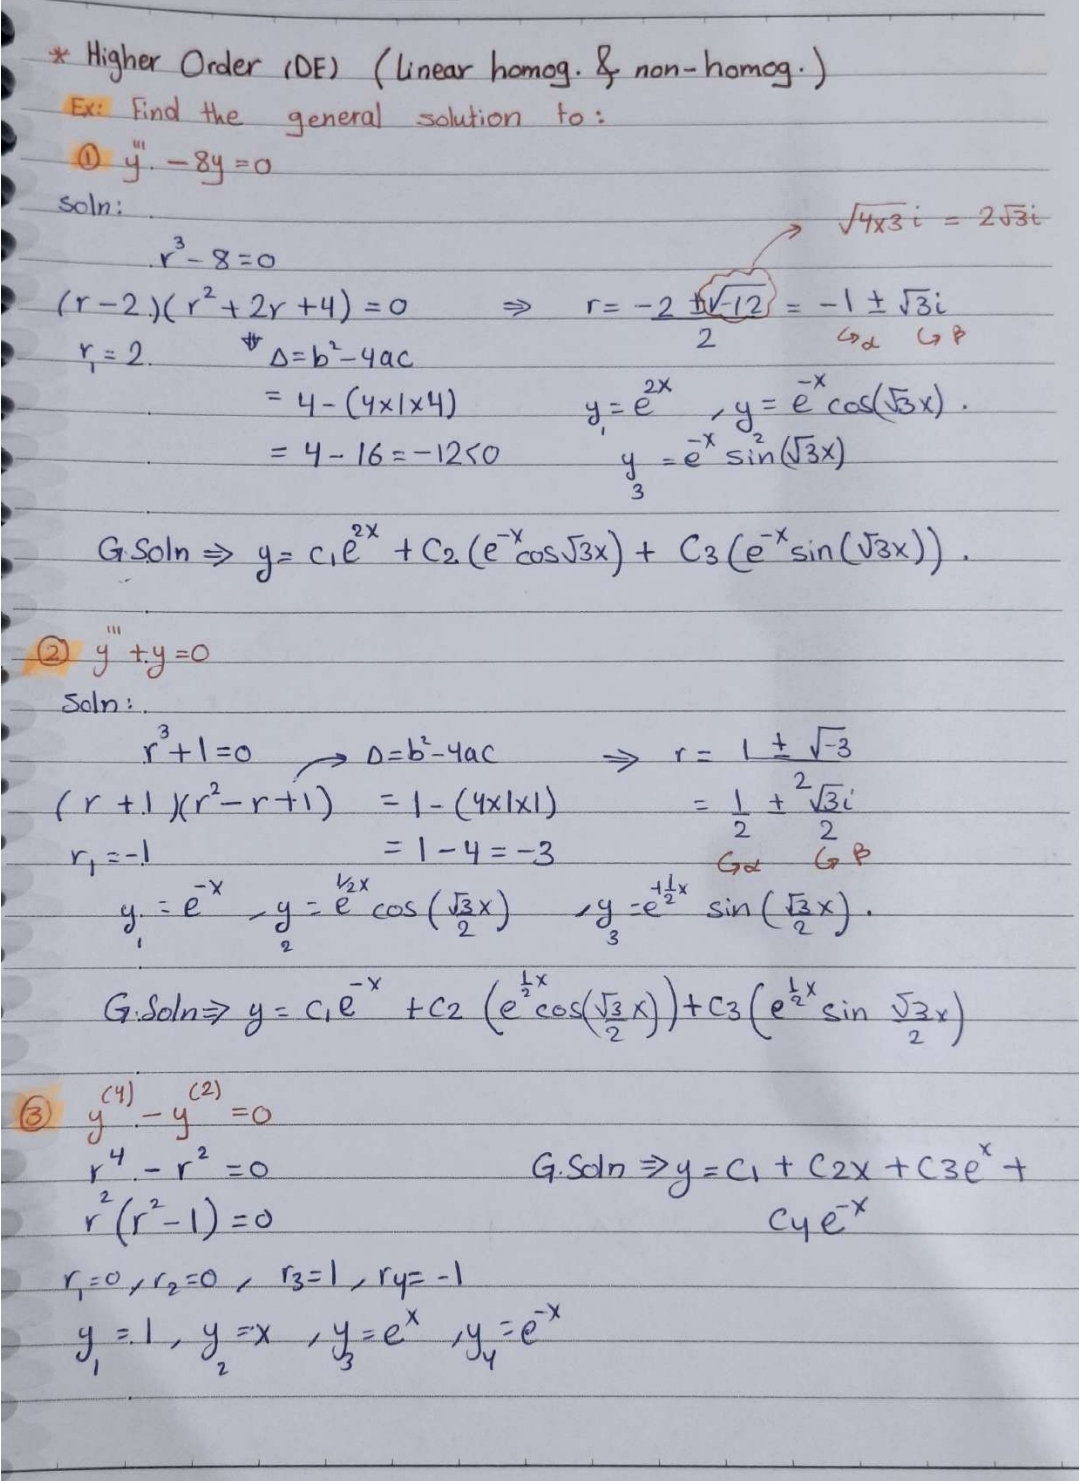 * Higher Order (DE) (Linear homog. & non-homog.)
Ex: Find the general solution to:
① y''' - 8y = 0
Soln:
√4x3 i = 2√3i
r³ - 8 = 0
(r-2)(r² + 2r + 4) = 0 ⇒ r = (-2 ± √-12)/2 = -1 ± √3i
r₁ = 2 * Δ = b² - 4ac ↳ α ↳ β
= 4 - (4x1x4) y₁ = e^2x , y₂ = e^-x cos(√3x).
= 4 - 16 = -12 < 0 y₃ = e^-x sin(√3x)
G.Soln ⇒ y = c₁e^2x + C2 (e^-x cos√3x) + C3 (e^-x sin(√3x)).
② y''' + y = 0
Soln:
r³ + 1 = 0 → Δ = b² - 4ac ⇒ r = (1 ± √-3)/2
(r + 1)(r² - r + 1) = 1 - (4x1x1) = 1/2 ± √3i/2
r₁ = -1 = 1 - 4 = -3 ↳ α ↳ β
y₁ = e^-x , y₂ = e^½x cos(√3/2 x) , y₃ = e^+½x sin(√3/2 x).
G.Soln ⇒ y = c₁e^-x + C2 (e^½x cos(√3/2 x)) + C3 (e^½x sin √3/2 x)
③ y^(4) - y^(2) = 0
r⁴ - r² = 0 G.Soln ⇒ y = C₁ + C2x + C3e^x +
r²(r² - 1) = 0 C4e^-x
r₁ = 0 , r₂ = 0 , r3 = 1 , r4 = -1
y₁ = 1 , y₂ = x , y₃ = e^x , y₄ = e^-x